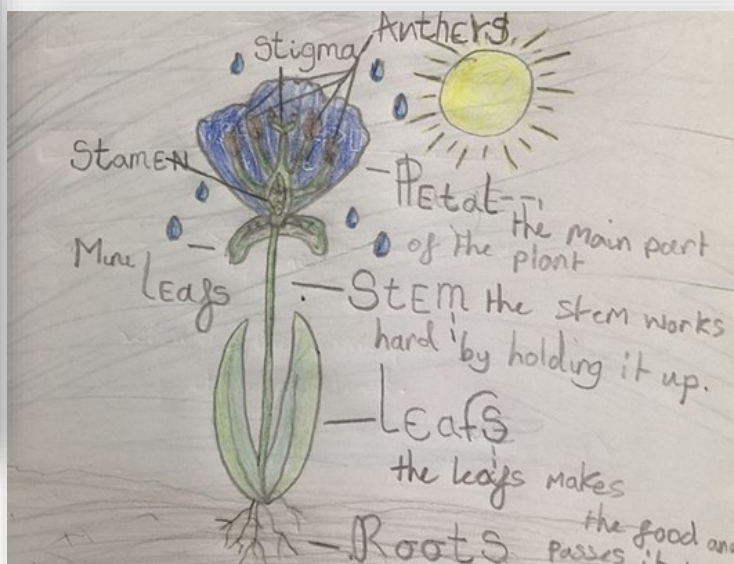 Anthers
Stigma
StamEN
PEtal-- the main part
of the plant
Mini
LEafs
StEm the stem works
hard by holding it up.
LEafS
the leafs makes
the food and
passes it
Roots